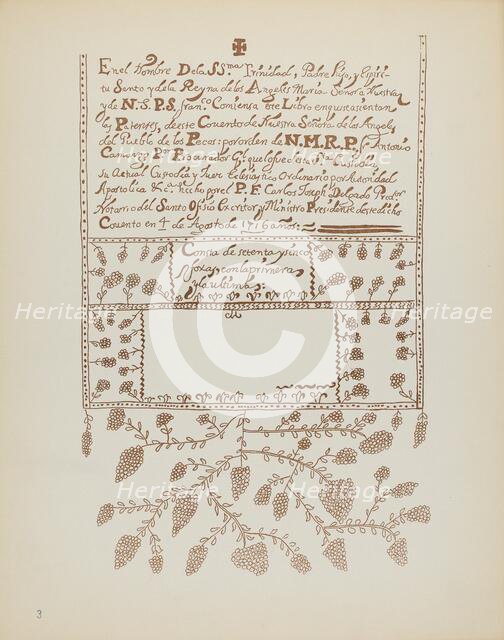 En el Nombre Dela SSma Trinidad, Padre Hijo, y Espiri-
tu Santo y dela Reyna delos Angeles Maria Señora Nuestra
y de N. S. P. S. Franco Comiensa este Libro en que se asientan
las Patentes, de este Convento de Nuestra Señora de los Angeles
del Pueblo de los Pecos: por orden de N. M. R. P. Fr. Antonio
Camargo Por Procurador
su Actual Custodia y Juez Eclesiastico Ordinario por Autoridad
Apostolica &ca hecho por el P. F. Carlos Joseph Delgado Predor
Notario del Santo Ofisio Escretor y Ministro Presidente de esedicho
Convento en 4 de Agosto de 1716 años:
Consta de setenta y sinco
foxas, con la primera
y la ultima:
Heritage
Heritage
Heritage
Heritage
Heritage
Heritage
C
3